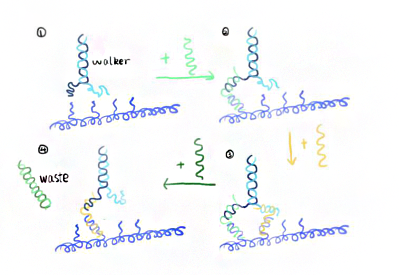 ①
walker
+
②
+
③
+
④
waste